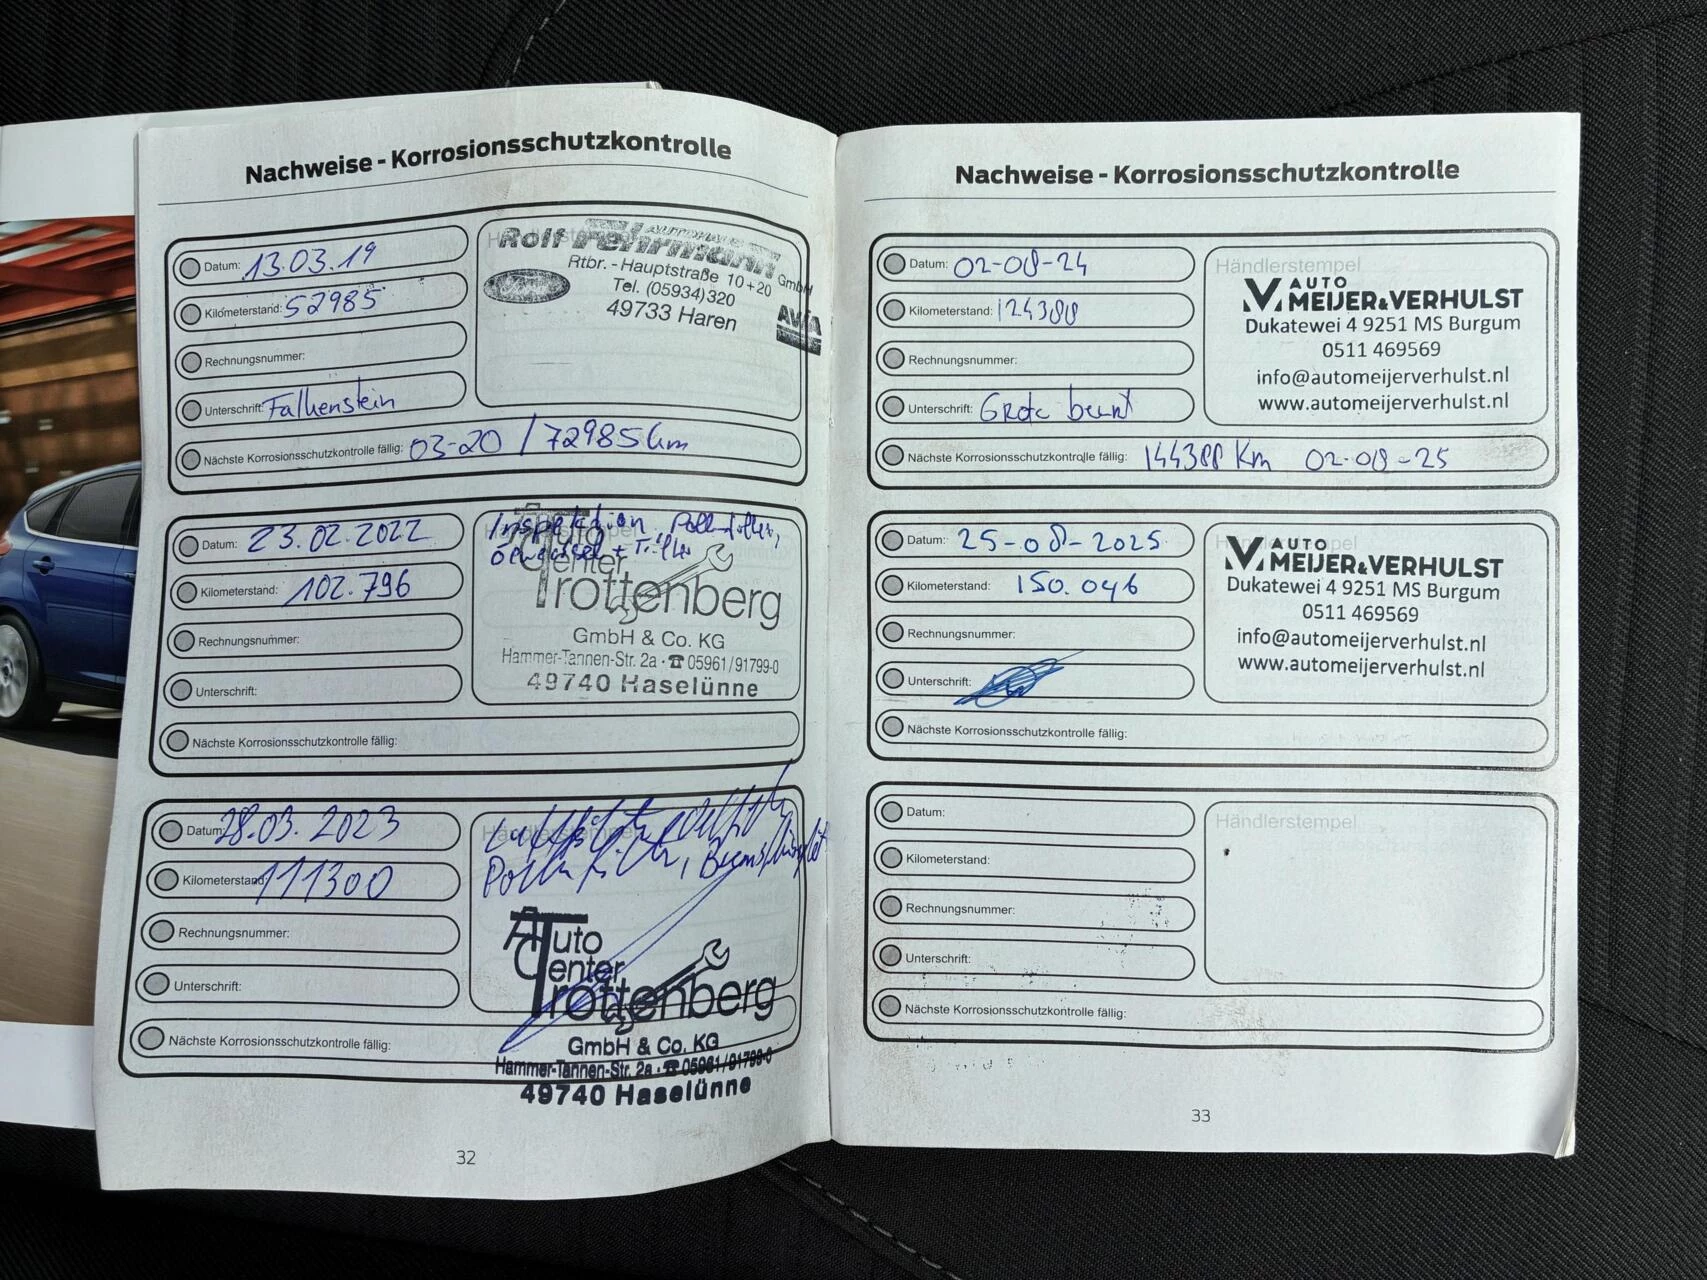 Nachweise - Korrosionsschutzkontrolle
Datum: 13.03.19
Kilometerstand: 52985
Rechnungsnummer:
Unterschrift: Falkenstein
Nächste Korrosionsschutzkontrolle fällig: 03-20 / 72985 km
AUTOHAUS
Rolf Fehrmann GmbH
Rtbr. - Hauptstraße 10+20
Tel. (05934) 320
49733 Haren
AVIA
Datum: 23.02.2022
Kilometerstand: 102.796
Rechnungsnummer:
Unterschrift:
Nächste Korrosionsschutzkontrolle fällig:
Inspektion, Pollenfilter,
Ölwechsel +
Auto
Center
Trottenberg
GmbH & Co. KG
Hammer-Tannen-Str. 2a · ☎ 05961/91799-0
49740 Haselünne
Datum: 28.03.2023
Kilometerstand: 111300
Rechnungsnummer:
Unterschrift:
Nächste Korrosionsschutzkontrolle fällig:
Händlerstempel
Luftfilter
Pollenfilter, Bremsflüssigkeit
Auto
Center
Trottenberg
GmbH & Co. KG
Hammer-Tannen-Str. 2a · ☎ 05961/91799-0
49740 Haselünne
32
Nachweise - Korrosionsschutzkontrolle
Datum: 02-08-24
Kilometerstand: 124388
Rechnungsnummer:
Unterschrift: Grote beurt
Nächste Korrosionsschutzkontrolle fällig: 144388 Km 02-08-25
Händlerstempel
AUTO
MEIJER&VERHULST
Dukatewei 4 9251 MS Burgum
0511 469569
info@automeijerverhulst.nl
www.automeijerverhulst.nl
Datum: 25-08-2025
Kilometerstand: 150.046
Rechnungsnummer:
Unterschrift:
Nächste Korrosionsschutzkontrolle fällig:
Händlerstempel
AUTO
MEIJER&VERHULST
Dukatewei 4 9251 MS Burgum
0511 469569
info@automeijerverhulst.nl
www.automeijerverhulst.nl
Datum:
Kilometerstand:
Rechnungsnummer:
Unterschrift:
Nächste Korrosionsschutzkontrolle fällig:
Händlerstempel
33